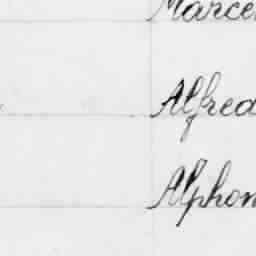 Marcel
Alfred
Alphon